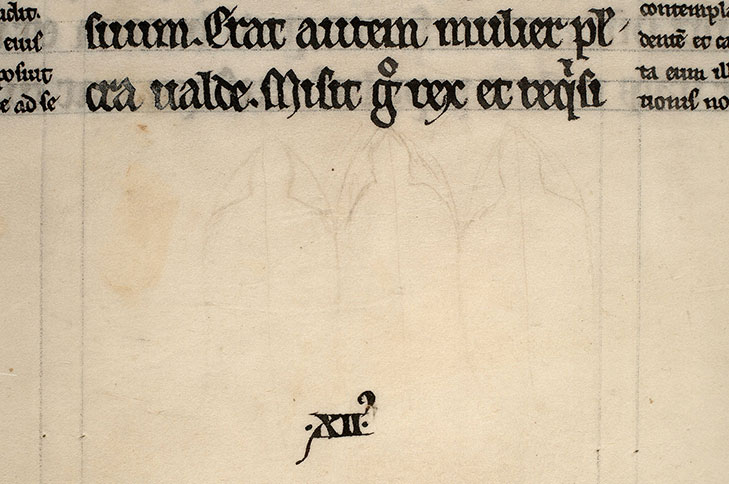 udit.
eius
posuit
e ad se
suum. Erat autem mulier pl̅
cra ualde. Misit gͦ rex et req̇si
contempla
dentē et ca
ta eum ill
tionis no
.XII.ꝰ